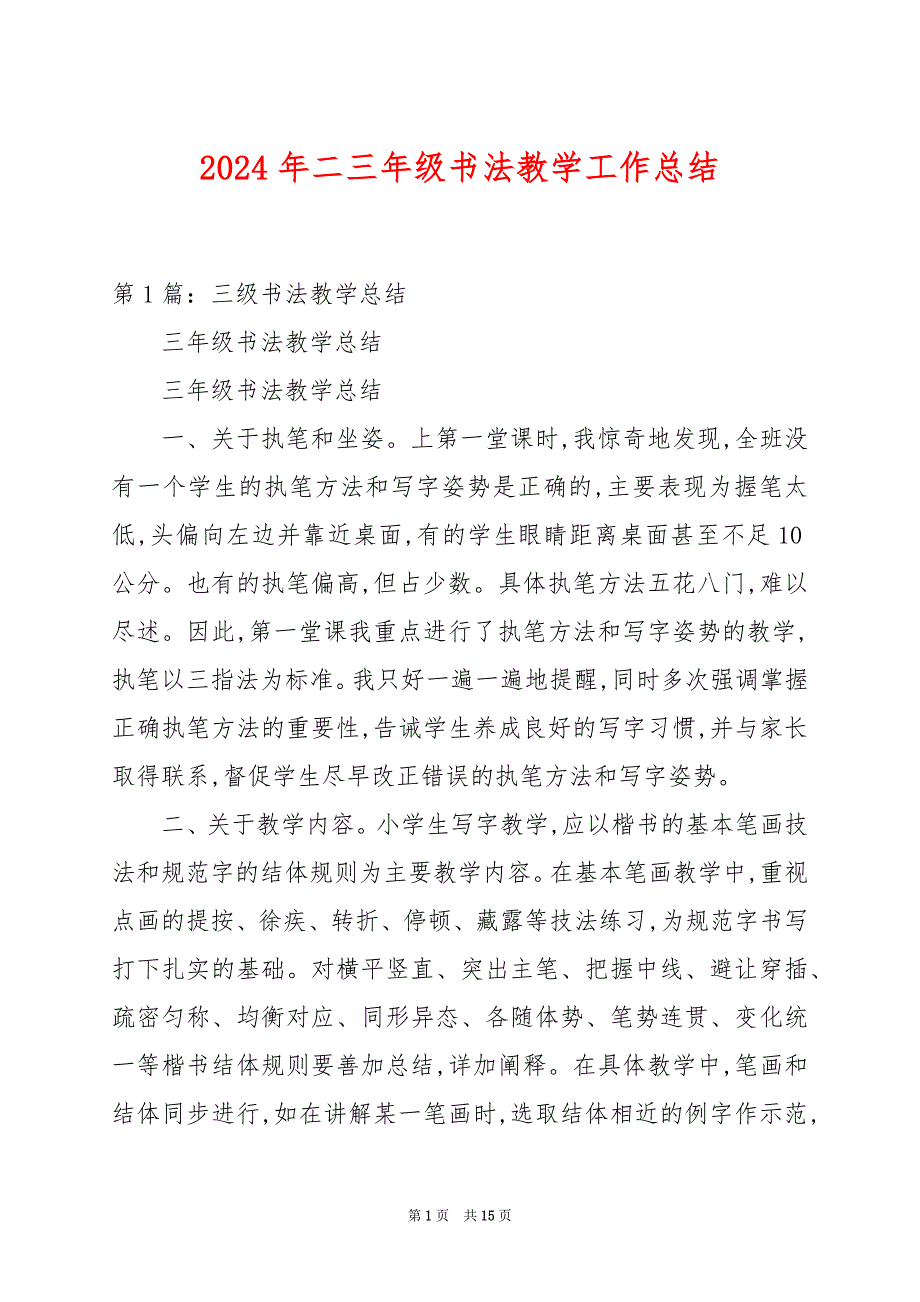 2024 年二三年级书法教学工作总结
第 1 篇：三级书法教学总结
三年级书法教学总结
三年级书法教学总结
一、关于执笔和坐姿。上第一堂课时,我惊奇地发现,全班没
有一个学生的执笔方法和写字姿势是正确的,主要表现为握笔太
低,头偏向左边并靠近桌面,有的学生眼睛距离桌面甚至不足 10
公分。也有的执笔偏高,但占少数。具体执笔方法五花八门,难以
尽述。因此,第一堂课我重点进行了执笔方法和写字姿势的教学,
执笔以三指法为标准。我只好一遍一遍地提醒,同时多次强调掌握
正确执笔方法的重要性,告诫学生养成良好的写字习惯,并与家长
取得联系,督促学生尽早改正错误的执笔方法和写字姿势。
二、关于教学内容。小学生写字教学,应以楷书的基本笔画技
法和规范字的结体规则为主要教学内容。在基本笔画教学中,重视
点画的提按、徐疾、转折、停顿、藏露等技法练习,为规范字书写
打下扎实的基础。对横平竖直、突出主笔、把握中线、避让穿插、
疏密匀称、均衡对应、同形异态、各随体势、笔势连贯、变化统
一等楷书结体规则要善加总结,详加阐释。在具体教学中,笔画和
结体同步进行,如在讲解某一笔画时,选取结体相近的例字作示范,
第 1 页 共 15 页